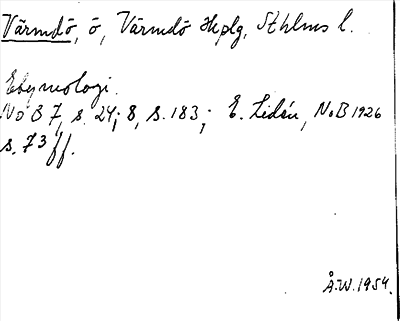 Värmdö, ö, Värmdö skplg, Sthlms l.
Etymologi.
NoB 7, s. 24; 8, s. 183; E. Lidén, NoB 1926
s. 73 ff.
Å.W. 1954.